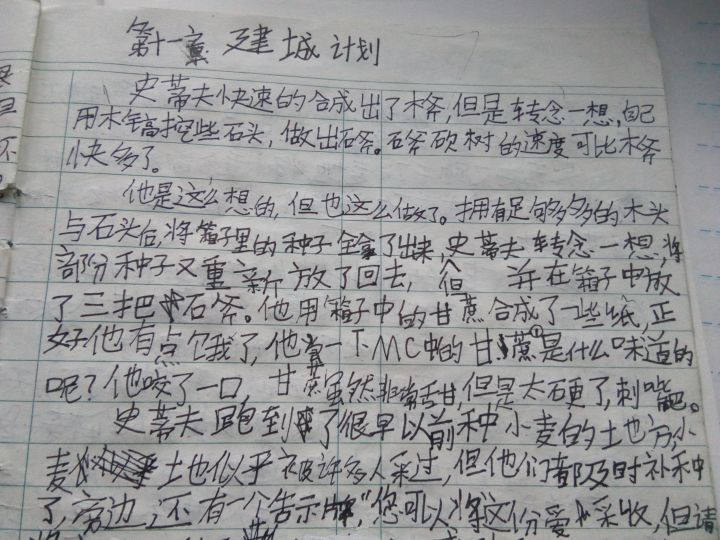 第十一章 建城计划
史蒂夫快速的合成出了木斧,但是转念一想,自己
用木镐挖些石头,做出石斧。石斧砍树的速度可比木斧
快多了。
他是这么想的,但也这么做了。拥有足够多多的木头
与石头后,将箱子里的种子全拿了出来,史蒂夫转念一想,将
部份种子又重新放了回去,但 并在箱子中放
了三把石斧。他用箱子中的甘蔗合成了一些纸,正
好他有点饿了,他尝一下MC中的甘蔗①是什么味道的
呢?他咬了一口,甘蔗虽然非常甜,但是太硬了,刺嘴巴。
史蒂夫跑到了很早以前种小麦的土地方,小
麦土地似乎被许多人采过,但他们都及时补种
了,旁边,还有一个告示牌,“您可以将这份爱采收,但请